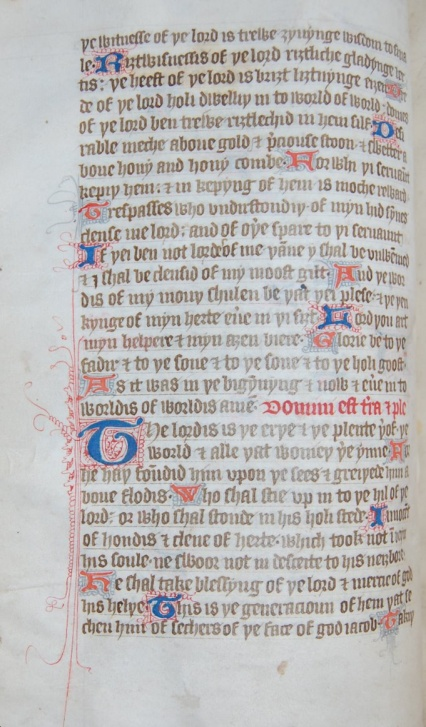 ye witnesse of ye lord is trewe ȝyuynge wisdom to
le. Riȝtwisnessis of ye lord riȝtliche gladynge her
tis: ye heest of ye lord is briȝt liȝtnynge
de of ye lord holi dwelliy in to world of world: domes
of ye lord ben trewe riȝtlechid in hem silf. Desi
rable meche aboue gold ⁊ preciouse stoon: ⁊ swetter a
boue hony and hony combe. For whi yi seruaunt
kepiy hem: ⁊ in kepyng of hem is moche reward.
Trespasses who vndirstondiy: of myn hid synnes
clense me lord: and of oyere spare to yi seruaunt
If yei ben not lordes of me yanne y shal be vnwemed
⁊ I shal be clensid of my moost gilt. And ye wor
dis of my mouy shulen be yat yei plese: ⁊ ye yen
kynge of myn herte euere in yi siȝt. Lord you art
myn helpere ⁊ myn aȝen biere. Glorie be to ye
fadir ⁊ to ye sone ⁊ to ye holi goost.
As it was in ye bigynnyng ⁊ now ⁊ euere in to
worldis of worldis amen. Domini est terra ⁊ ple
The lordis is ye erye ⁊ ye plente yerof. ye
world ⁊ alle yat woniey yerynne. For
he hay foundid him vpon ye sees ⁊ greiyede him a
boue flodis. Who shal stie vp in to ye hil of ye
lord: or who shal stonde in his holi stede. Innocent
of hondis ⁊ clene of herte: which took not in veyn
his soule: ne swoor not in desceite to his neiȝbore.
He shal take blessyng of ye lord ⁊ mercie of god
his helye. This is ye generacioun of hem yat se
chen him: of sechers of ye face of god iacob.